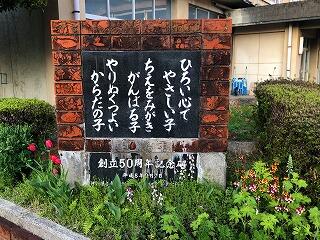 ひろい心で
やさしい子
ちえをみがき
がんばる子
やりぬくつよい
からだの子
創立50周年記念碑